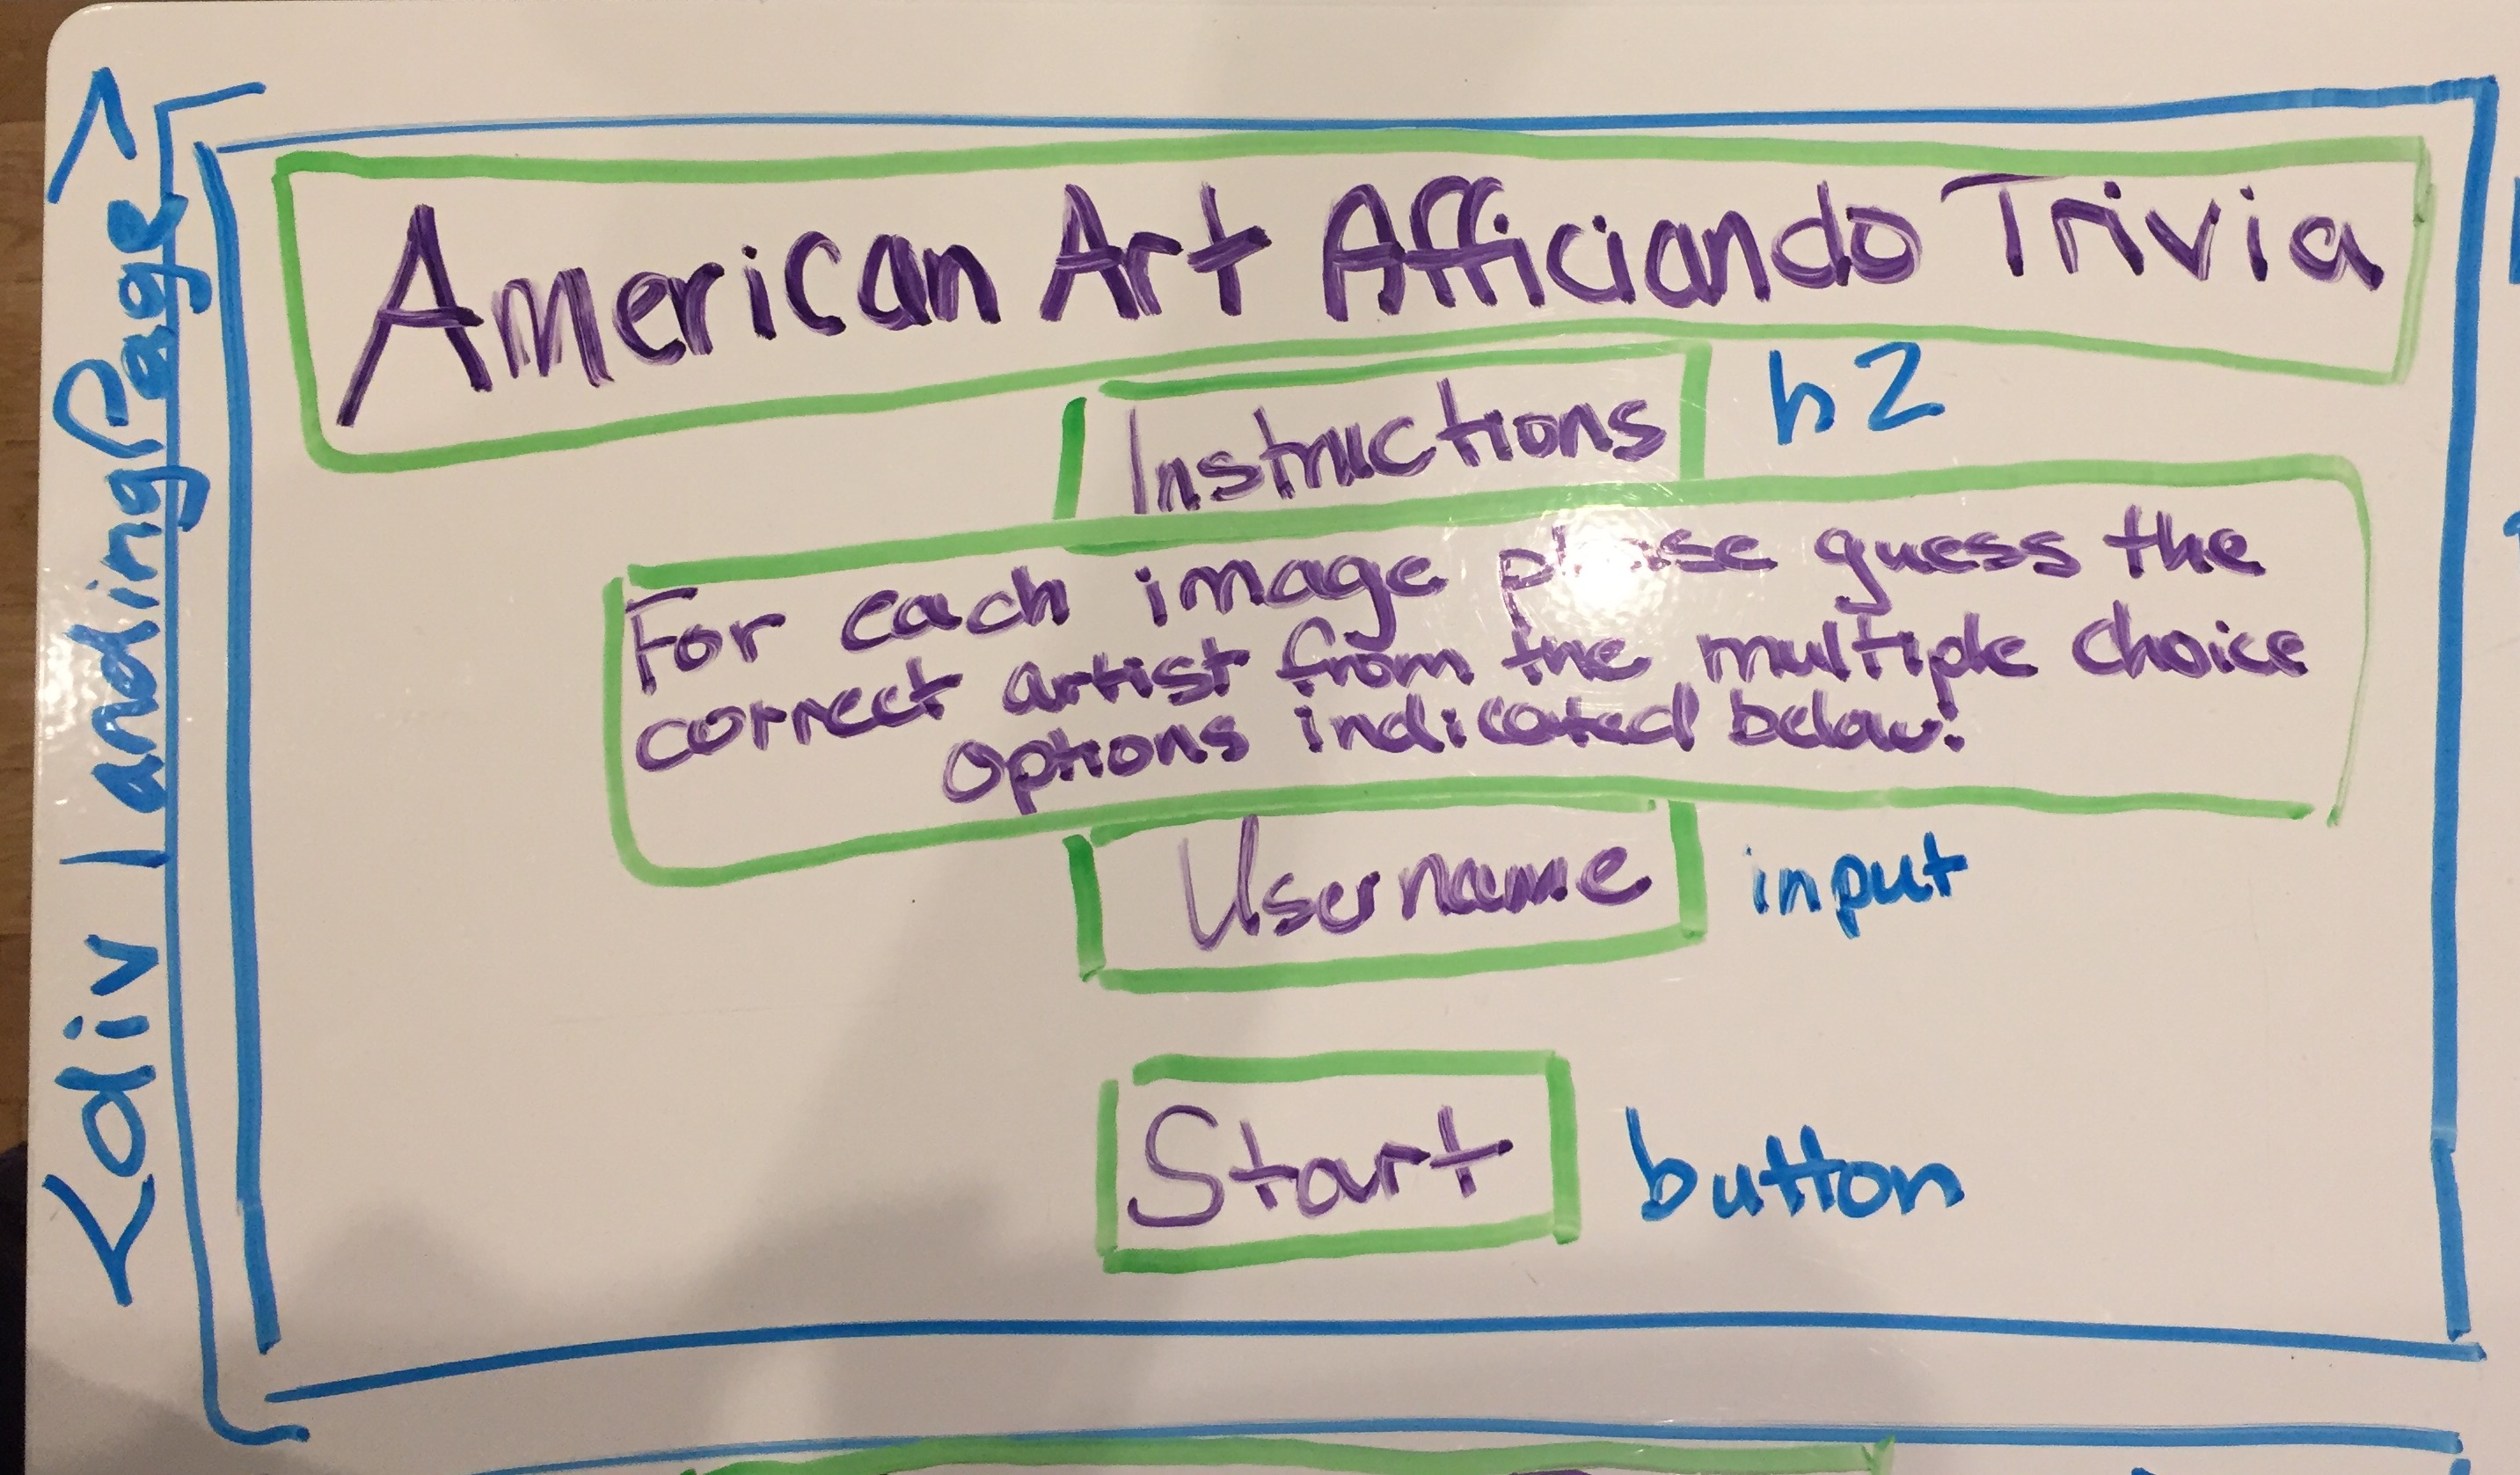 <div landingPage>
American Art Afficiando Trivia
Instructions h2
For each image please guess the
correct artist from the multiple choice
options indicated below:
Username input
Start button